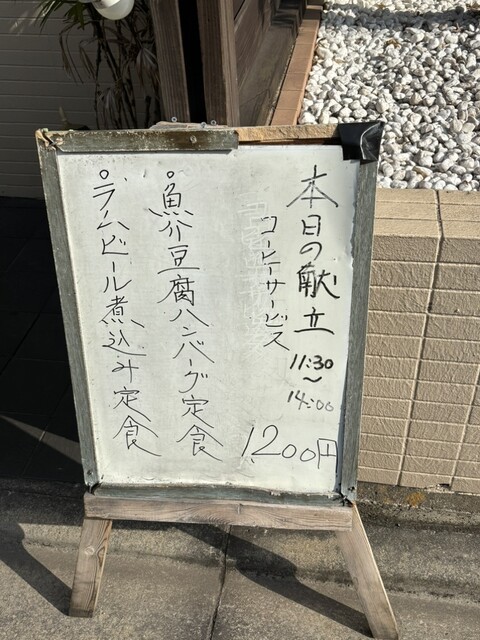 本日の献立
11:30
~
14:00
コーヒーサービス
1200円
○魚介豆腐ハンバーグ定食
○ラムビール煮込み定食